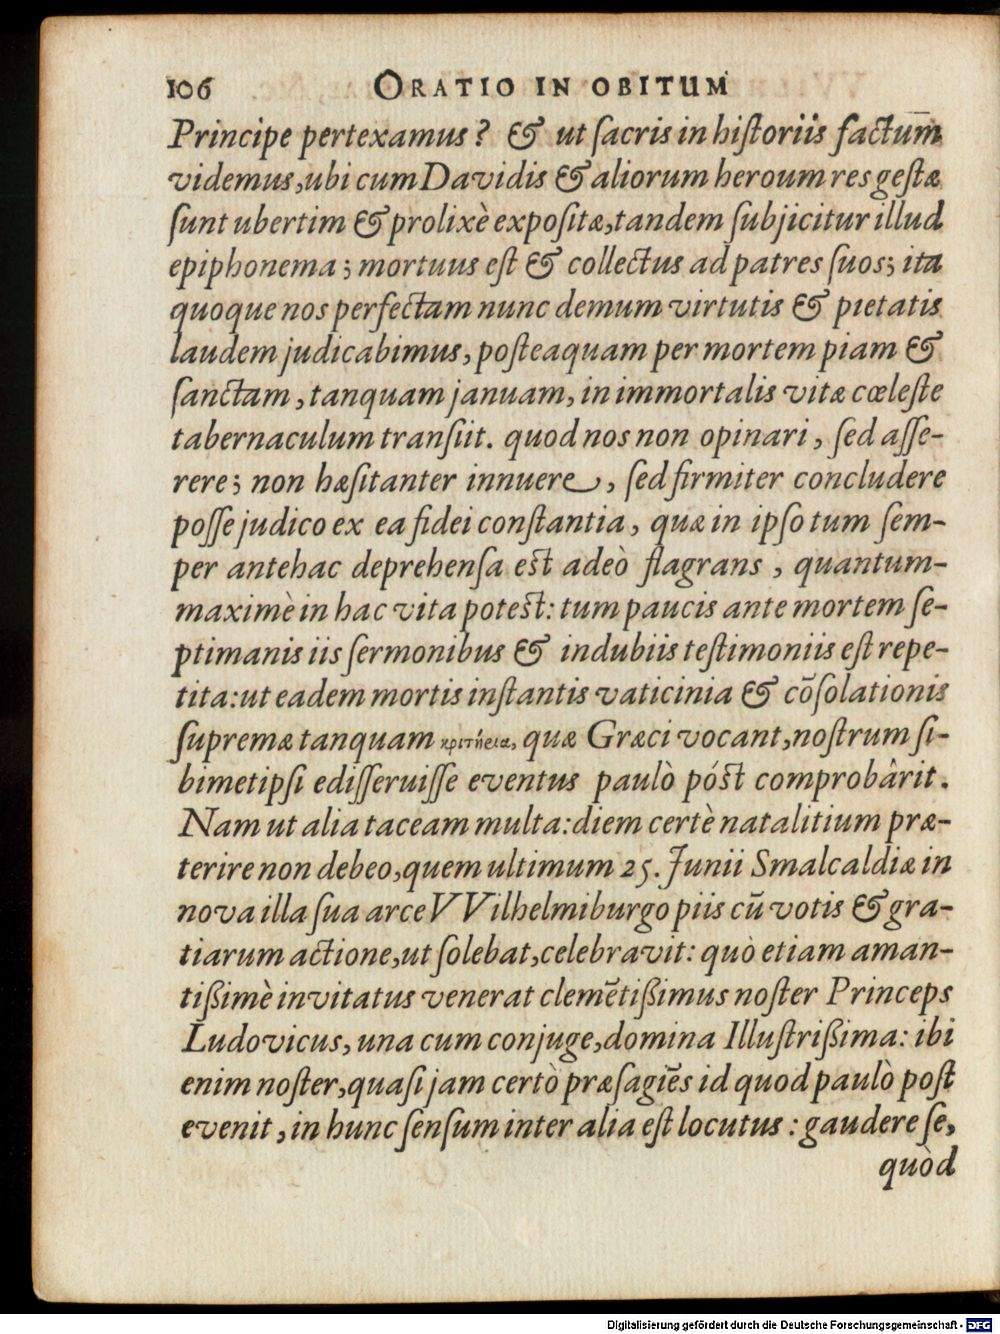 106 ORATIO IN OBITUM
Principe pertexamus? & ut ſacris in hiſtoriis factum̅
videmus, ubi cum Davidis & aliorum heroum res geſtæ
ſunt ubertim & prolixè expoſitæ, tandem ſubjicitur illud
epiphonema; mortuus eſt & collectus ad patres ſuos; ita
quoque nos perfectam nunc demum virtutis & pietatis
laudem judicabimus, poſteaquam per mortem piam &
ſanctam, tanquam januam, in immortalis vitæ cœleſte
tabernaculum tranſiit. quod nos non opinari, ſed aſſe-
rere; non hæſitanter innuere, ſed firmiter concludere
poſſe judico ex ea fidei conſtantia, quæ in ipſo tum ſem-
per antehac deprehenſa eſt adeò flagrans, quantum-
maximè in hac vita poteſt: tum paucis ante mortem ſe-
ptimanis iis ſermonibus & indubiis teſtimoniis eſt repe-
tita: ut eadem mortis inſtantis vaticinia & cõſolationis
ſupremæ tanquam quæ Græci vocant, noſtrum ſi-
bimetipſi ediſſeruiſſe eventus paulò póſt comprobârit.
Nam ut alia taceam multa: diem certè natalitium præ-
terire non debeo, quem ultimum 25. Junii Smalcaldiæ in
nova illa ſua arce VVilhelmiburgo piis cũ votis & gra-
tiarum actione, ut ſolebat, celebravit: quò etiam aman-
tißimè invitatus venerat clemẽtißimus noſter Princeps
Ludovicus, una cum conjuge, domina Illuſtrißima: ibi
enim noſter, quaſi jam certò præſagiẽs id quod paulò poſt
evenit, in hunc ſenſum inter alia eſt locutus: gaudere ſe,
quòd
Digitalisierung gefördert durch die Deutsche Forschungsgemeinschaft - DFG